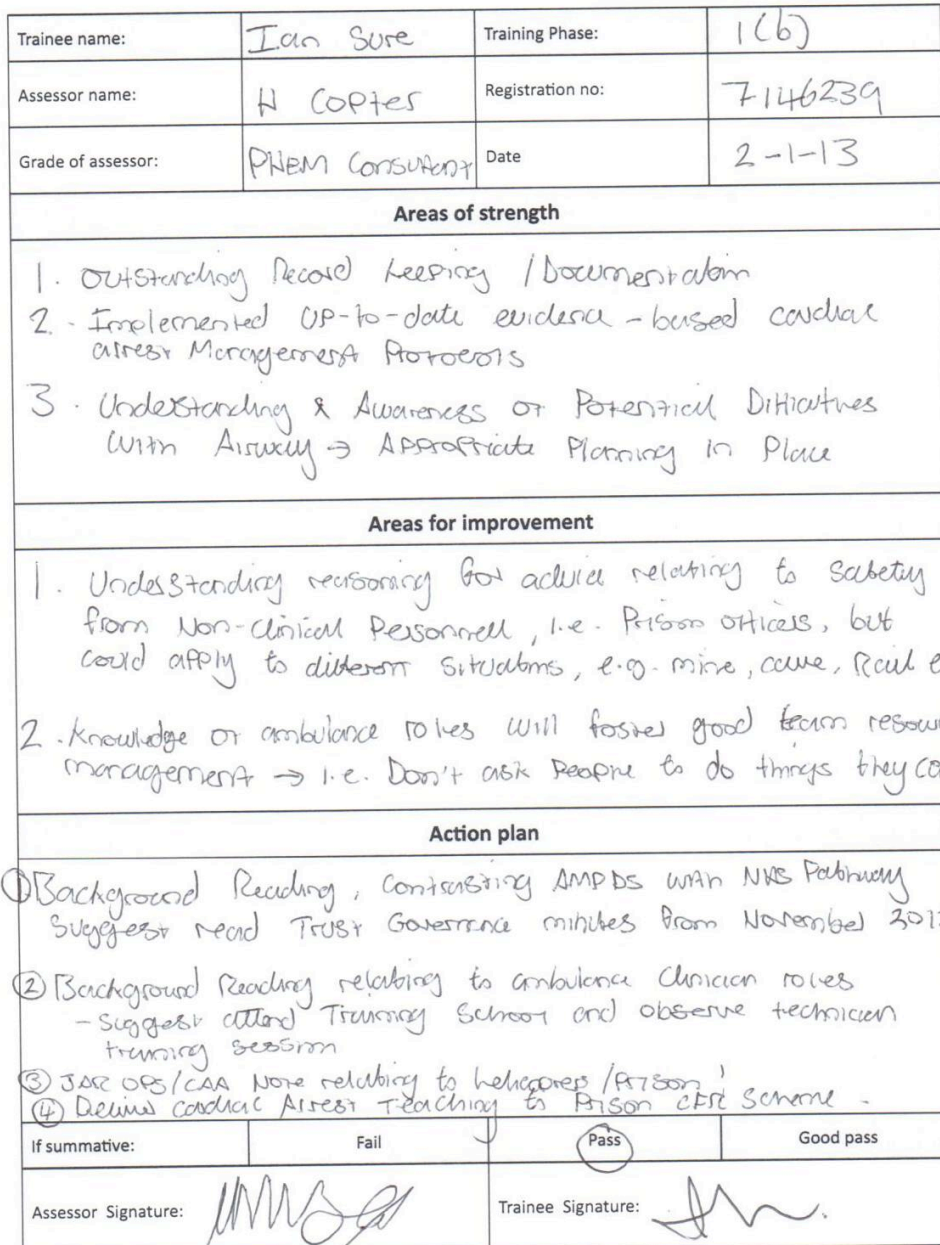 Trainee name: Ian Sure Training Phase: 1(b)
Assessor name: H Copter Registration no: 7146239
Grade of assessor: PHEM Consultant Date 2-1-13
Areas of strength
1. Outstanding Record Keeping / Documentation
2. Implemented up-to-date evidence-based cardiac
arrest Management Protocols
3. Understanding & Awareness of Potential Difficulties
with Airway → Appropriate Planning in Place
Areas for improvement
1. Understanding reasoning for advice relating to safety
from Non-Clinical Personnell, i.e. Prison officers, but
could apply to different situations, e.g. mine, cave, Rail
2. Knowledge of ambulance roles will foster good team
management → i.e. Don't ask People to do things they
Action plan
① Background Reading, contrasting AMPDS with NHS Pathway
Suggest read Trust Governance minutes from November
② Background Reading relating to ambulance clinician roles
- Suggest attend Training School and observe technician
training session
③ JAR OPS/CAA Note relating to helicopters / Prison
④ Deliver cardiac Arrest Teaching to Prison CFR Scheme.
If summative: Fail Pass Good pass
Assessor Signature: Trainee Signature: